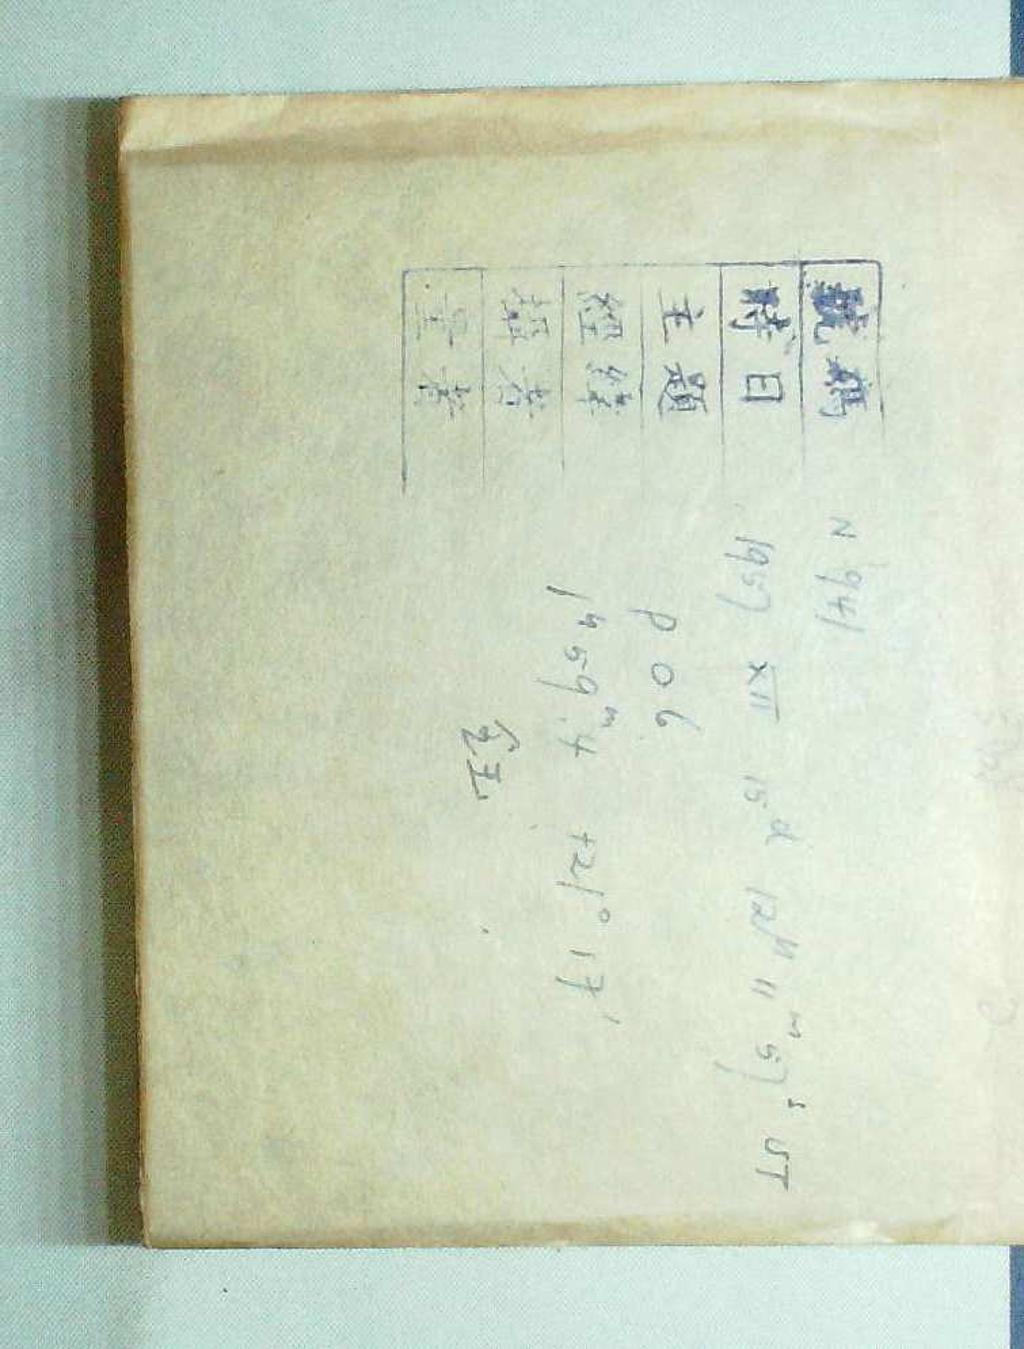 號碼 N 941
時日 1957 XII 15d 12h 11m 57s UT
主題 P06
經緯 1h 59m.4 +21° 17'
攝者
量者